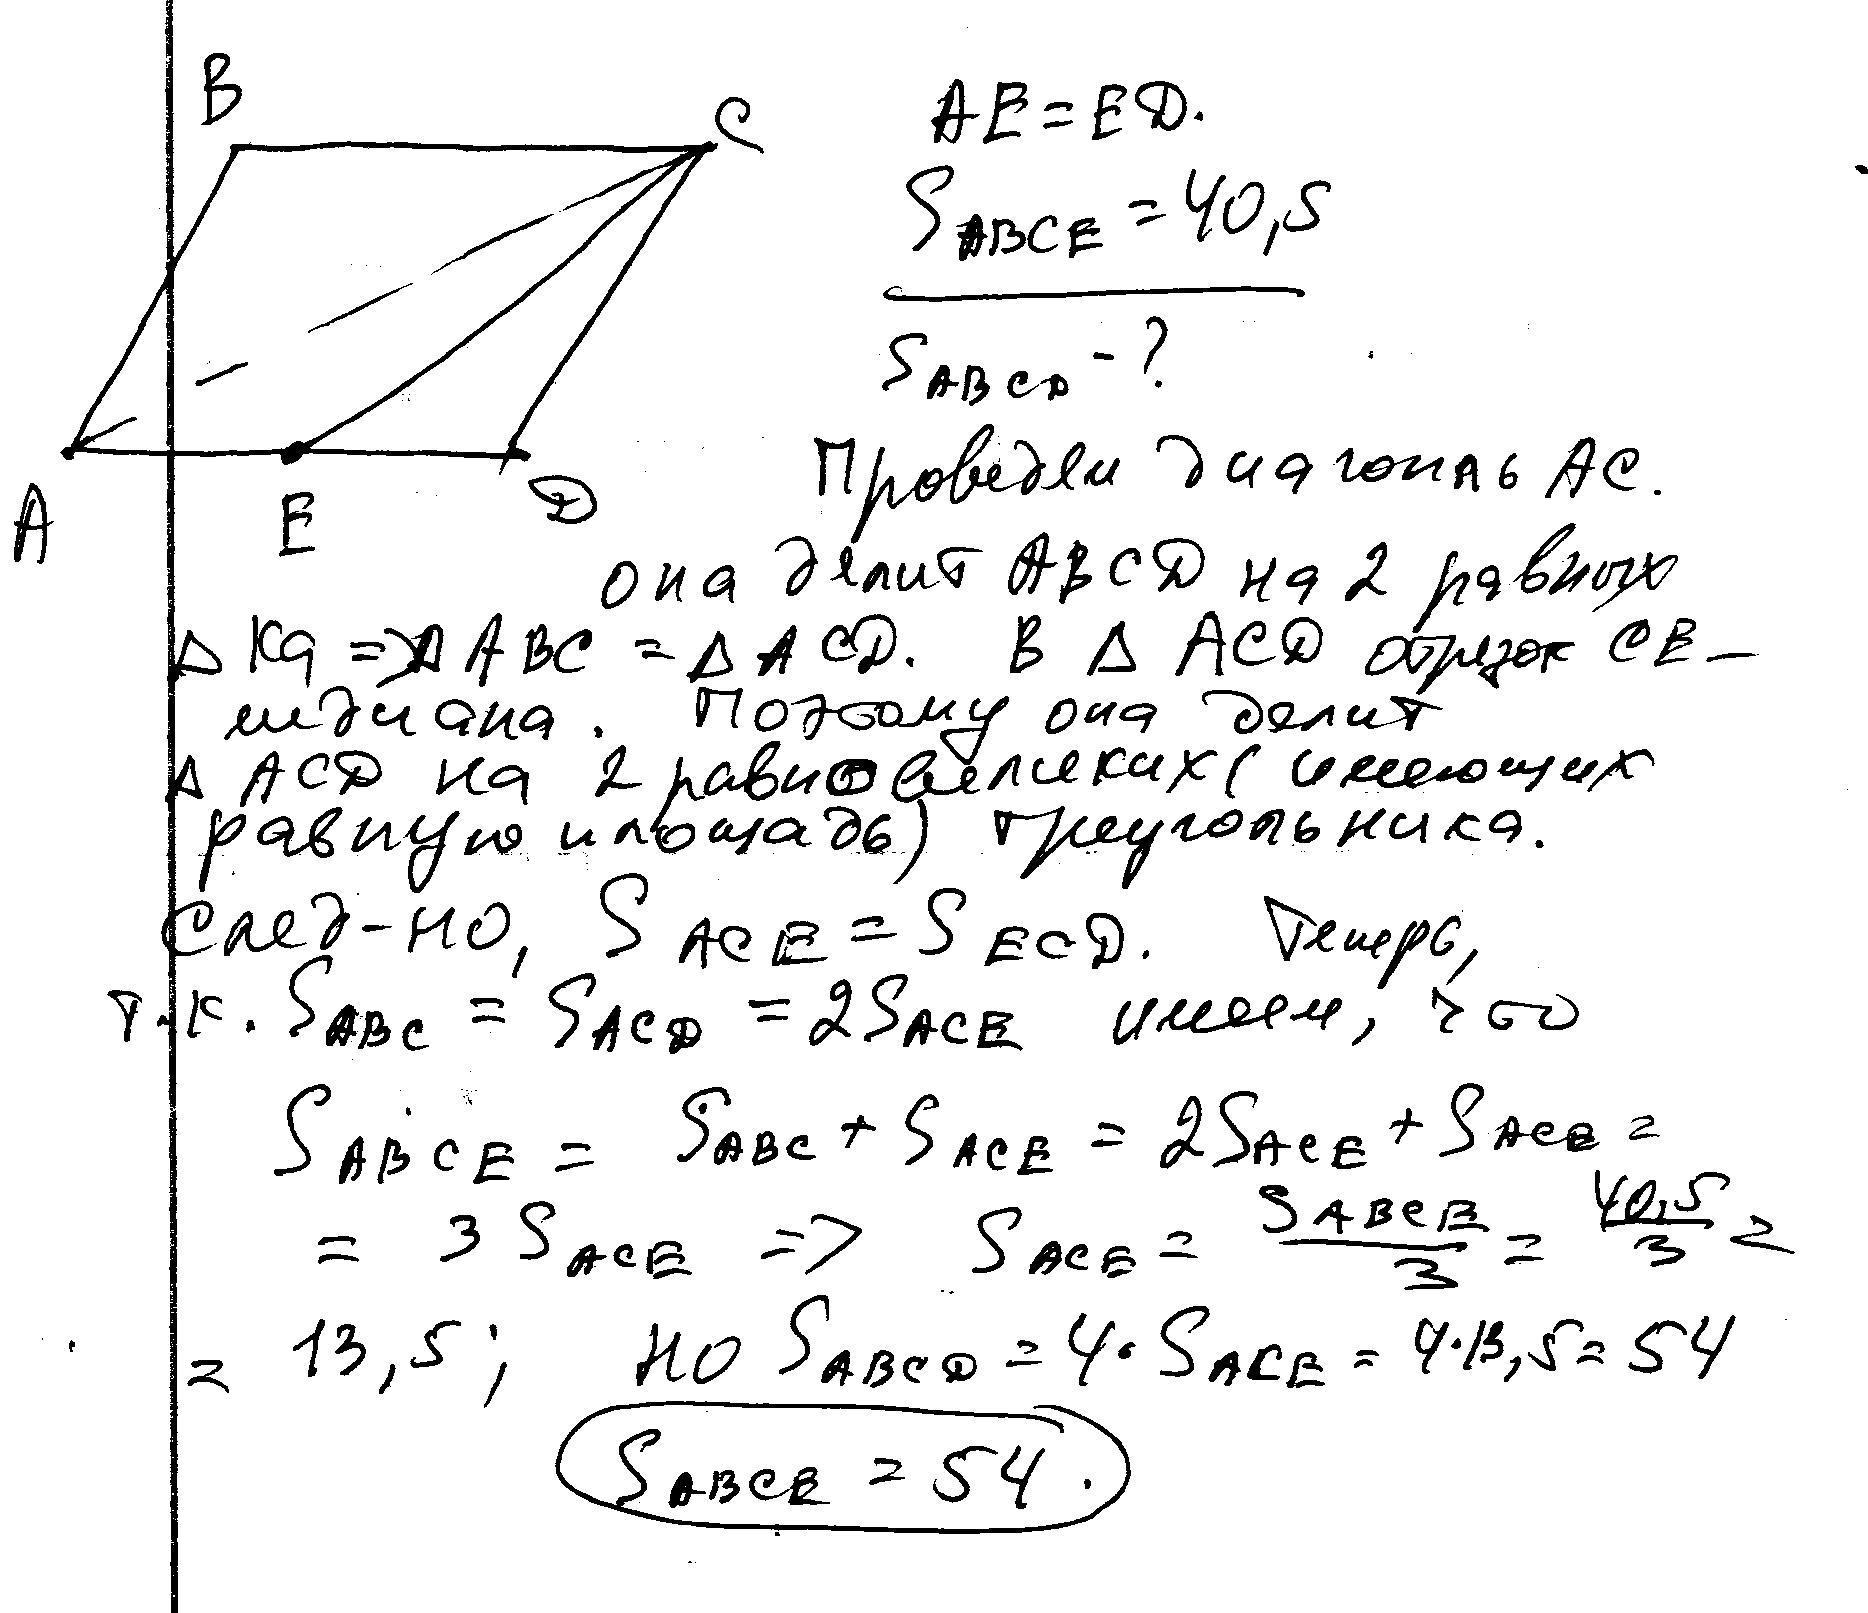 B
C
A
E
D
AE=ED.
S ABCE = 40,5
S ABCD - ?
Проведём диагональ AC.
она делит ABCD на 2 равных
Δ ка => Δ ABC = Δ ACD. В Δ ACD отрезок CE -
медиана. Поэтому она делит
Δ ACD на 2 равновеликих (имеющих
равную площадь) треугольника.
След-но, S ACE = S ECD. Теперь,
т.к. S ABC = S ACD = 2S ACE имеем, что
S ABCE = S ABC + S ACE = 2S ACE + S ACE =
= 3 S ACE => S ACE = S ABCE / 3 = 40,5 / 3 =
= 13,5; но S ABCD = 4 · S ACE = 4·13,5 = 54
S ABCE = 54.